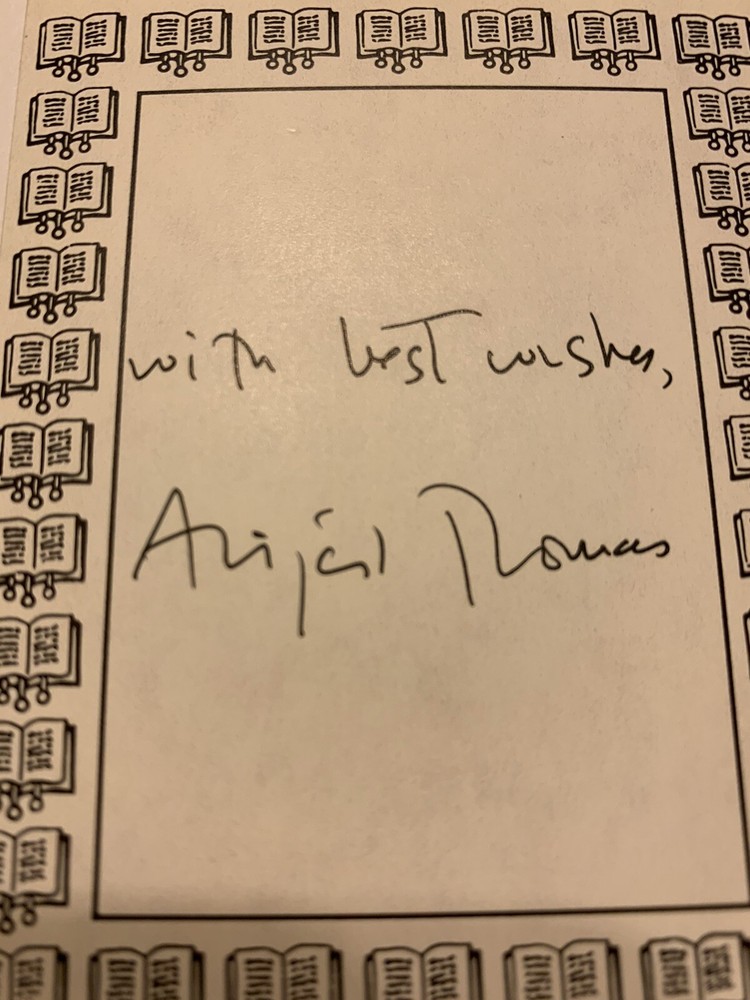 with best wishes,
Abigail Thomas